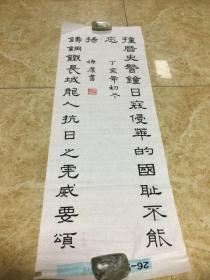 撞曆史警鐘日寇侵華的國恥不能
忘
丁亥年初冬
鑄鋼鐵長城龍人抗日之軍威要頌
揚
書